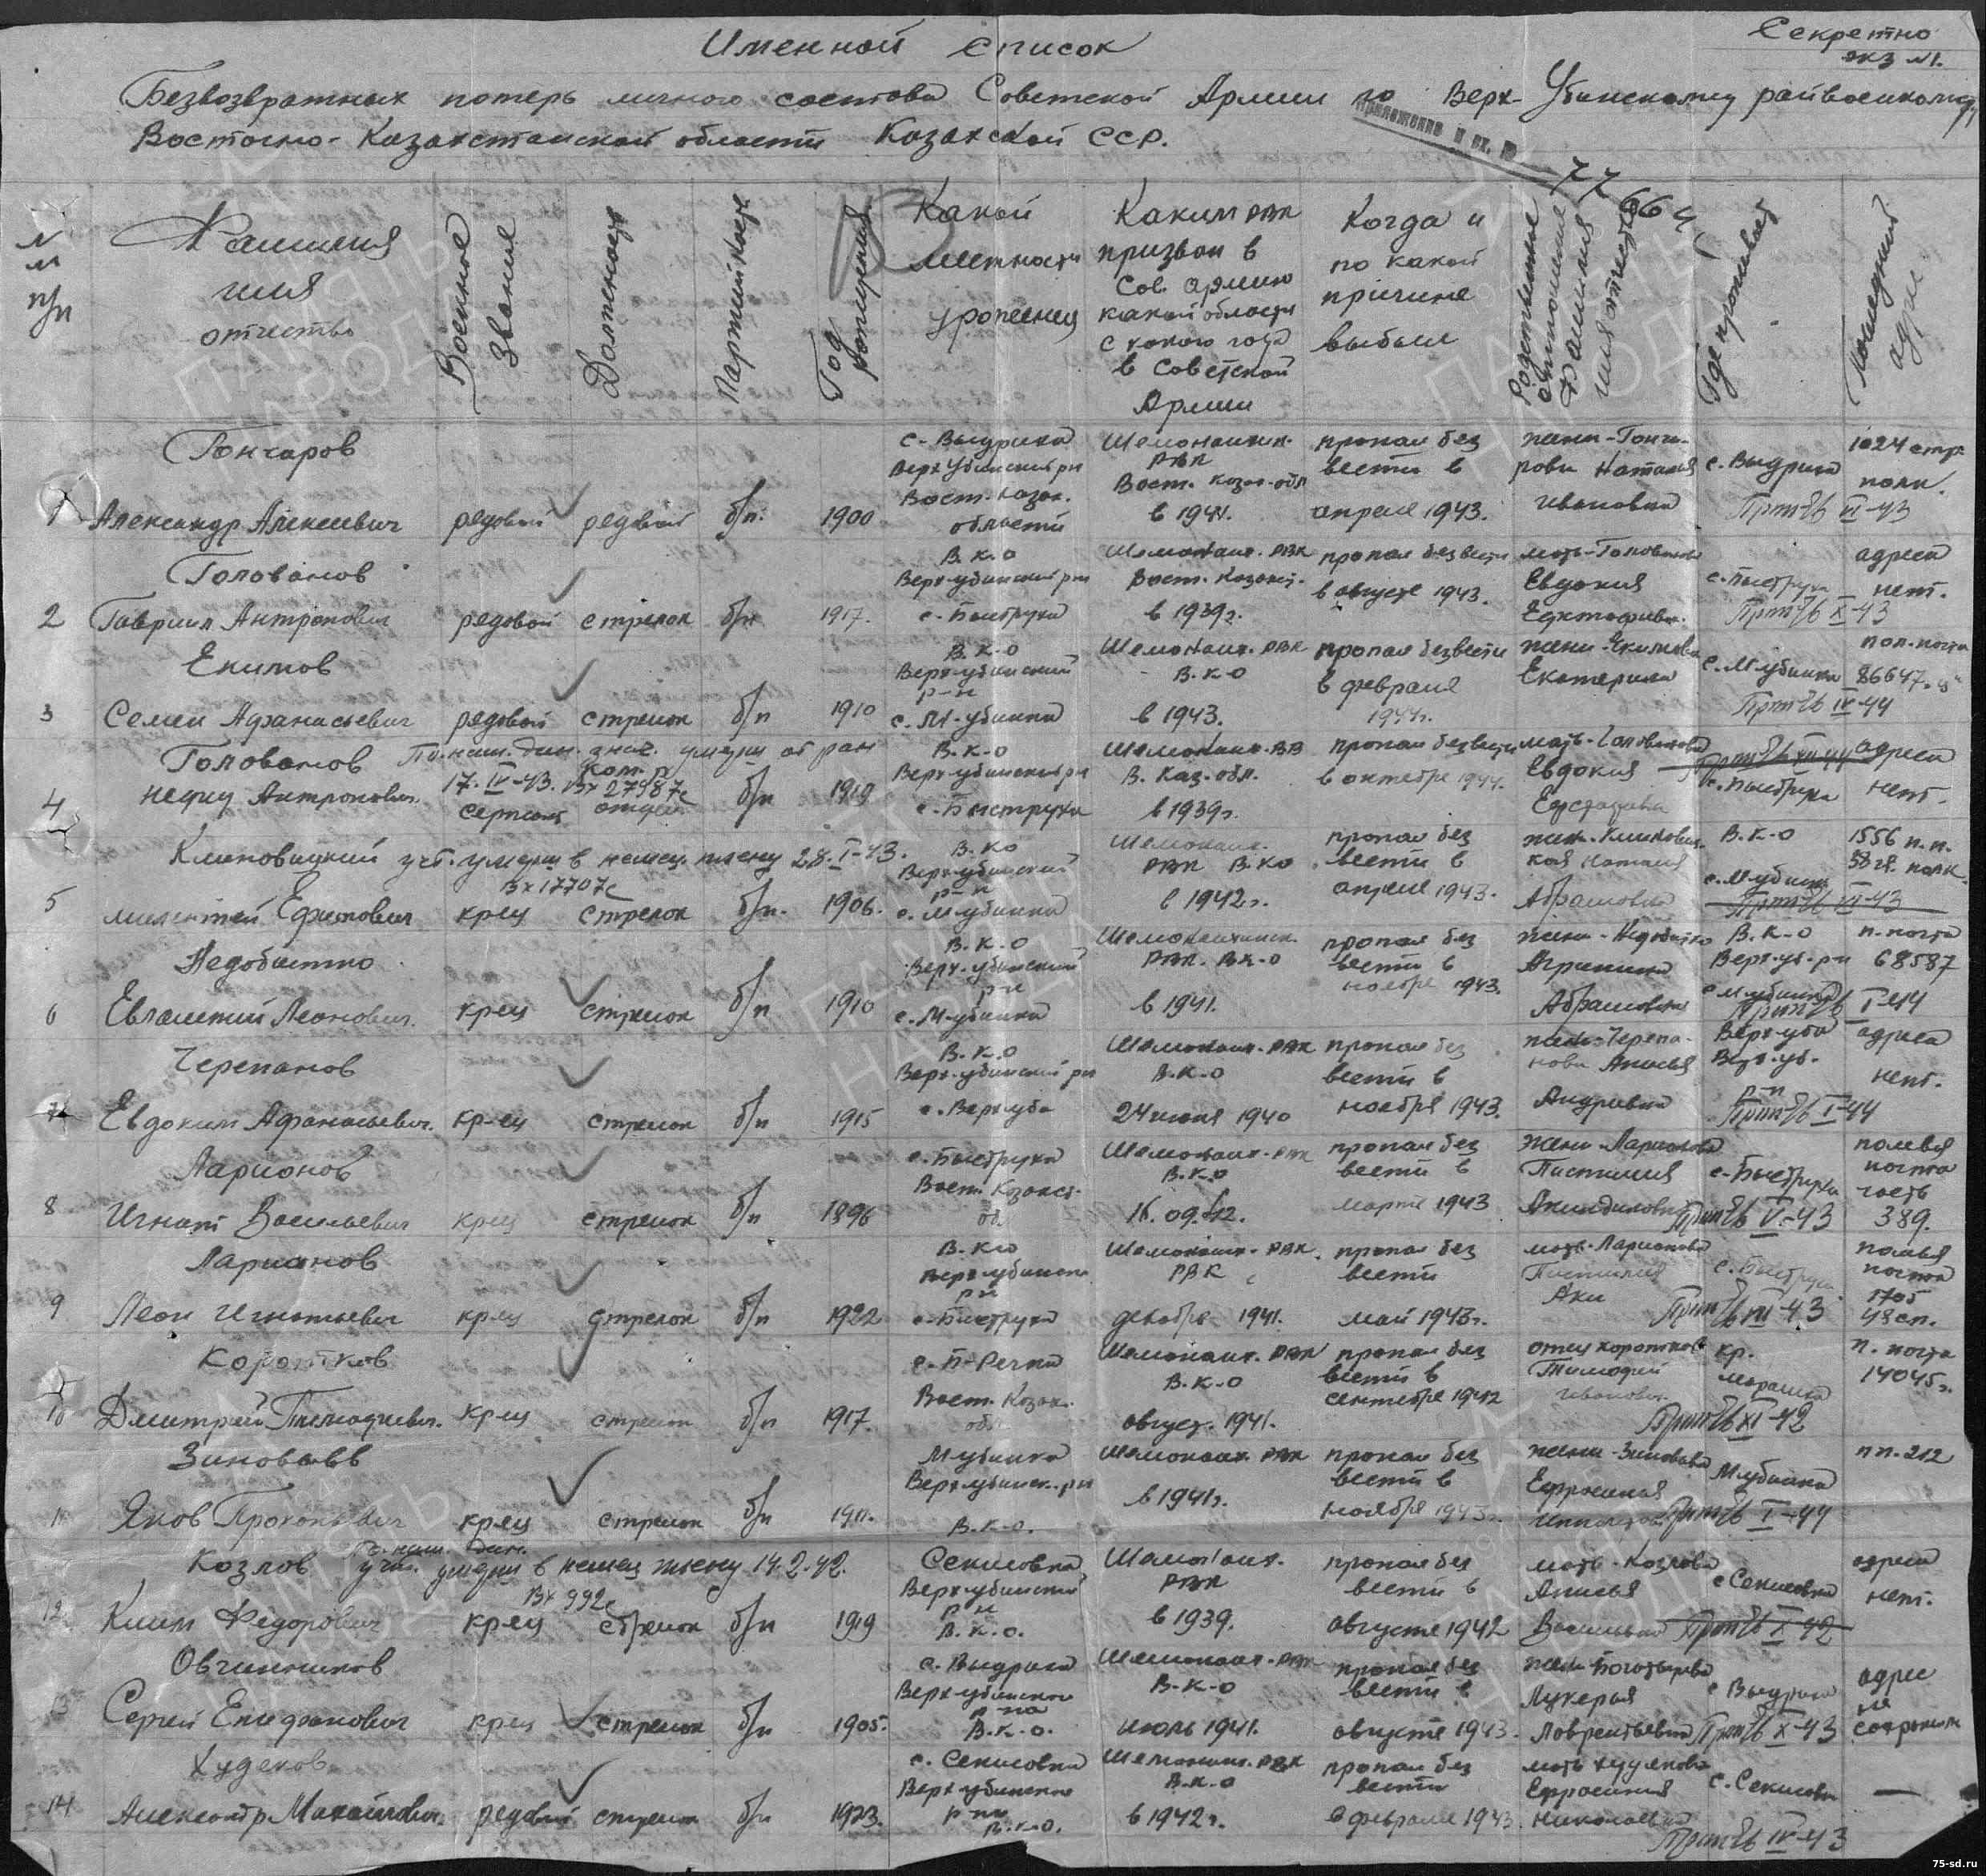 Секретно
экз №1.
Именной список
Безвозвратных потерь личного состава Советской Армии по Верх-Убинскому райвоенкомату
Восточно-Казахстанской области Казахской ССР.
Приложение к вх. №
77664
№№ п/п
Фамилия имя отчество
Военное звание
Должность
Партийность
Год рождения
Какой местности уроженец
Каким РВК призван в Сов. армию какой области с какого года в Советской Армии
Когда и по какой причине выбыл
Родственные отношения Фамилия имя отчество
Где проживает
Последний адрес
1 Гончаров Александр Алексеевич редовой редовой б/п. 1900 с-Выдриха Верх Убинский рн Вост. Казах. области Шемонаихин. РВК Вост. Казах-обл в 1941. пропал без вести в апреле 1943. жена-Гончарова Наталия Ивановна с. Выдриха 1024 стр. полк.
VI-43
2 Голованов Гавриил Антропович редовой стрелок б/п 1917. В.К.О Верх-убинский рн с-Быструха Шемонаих. РВК Вост. Казахст. в 1939г. пропал без вести в августе 1943. мать-Голованова Евдокия с. Быструха адреса нет.
X-43
3 Екимов Семен Афанасьевич редовой стрелок б/п 1910 В.К-О Верх-убинский р-н с. М-убинка Шемонаих. РВК В.К-О в 1943. пропал без вести в феврале 1944г. жена-Екимова Екатерина с. М-убинка пол-почта 86647
IV-44
4 Голованов Антропович сержант ком. отдел б/п 1919 В.К-О Верх-убинский рн с-Быструха Шемонаих. В. Каз-обл. в 1939г. пропал без вести в октябре 1944. мать-Голованова Евдокия с. Быструха адреса нет.
По наш. дан. знач. умерш от ран 17.IV-43. Вх 27987с
XII-44
5 Климовицкий Ефимович кр-ец стрелок б/п. 1906. В.КО Верх-убинский р-н с. М-убинка Шемонаих. РВК В.КО в 1942г. пропал без вести в апреле 1943. Наталия Абрамовна В.К-О с. М-убинка 1556 п.п. 58 гв. полк.
учт. умерш в немец. плену 28.I-43. Вх 17707с
VI-43
6 Недобитко Евлампий Леонович. кр-ец стрелок б/п 1910 В.К-О Верх-убинский р-н с. М-убинка Шемонаихинск. РВК. ВК-О в 1941. пропал без вести в ноябре 1943. жена-Недобитко Агрипина Абрамовна В.К-О Верх-уб-р-н с М-убинка п-почта 68587
I-44
7 Черепанов Евдоким Афанасьевич. кр-ец стрелок б/п 1915 В.К-О Верх-убинский рн с. Верх-уба Шемонаих-РВК В.К-О 24 июня 1940 пропал без вести в ноября 1943. жена-Черепанова Анисья Андреевна Верх-уба Верх-уб. р-н адреса нет.
I-44
8 Ларионов Игнат Васильевич кр-ец стрелок б/п 1896 с-Быструха Вост. Казахст. об. Шемонаих-РВК В.К-О 16.09.42. пропал без вести в марте 1943 жена-Ларионова Пистимия с-Быструха полевая почта часть 389.
V-43
9 Ларионов Леон Игнатьевич кр-ец стрелок б/п 1922 В-КО Верх-убинск рн с-Быструха Шемонаих-РВК. РВК декабрь 1941. пропал без вести май 1943г. мать-Ларионова Пистимия Аки с. Быструха полевая почта 1705 48сп.
VII-43
10 Коротков Дмитрий Тимофеевич. кр-ец стрелок б/п 1917. с-П-Речка Вост. Казах. обл. Шемонаих. РВК В.К-О август. 1941. пропал без вести в сентябре 1942 отец Коротков Тимофей Иванович. п. почта 14045г.
XI-42
11 Зиновьев Яков Прокопьевич кр-ец стрелок б/п 1911. М-убинка Верх-убинск.-рн В.К-О. Шемонаих. РВК в 1941г. пропал без вести в ноября 1943г. жена-Зиновьева Ефросиния М-убинка пп-212
I-44
12 Козлов Клим Федорович кр-ец стрелок б/п 1919 Секисовка Верх-убинский р-н В.К.О. Шемонаих. РВК в 1939. пропал без вести в августе 1942 мать-Козлова Анисья Васильевна с Секисовка адреса нет.
По наш. дан. учт. умерш в немец. плену 14.2.42. Вх 992с
X-42
13 Овчинников Сергей Епифанович кр-ец стрелок б/п 1905. с. Выдриха Верх-убинского р-на В.К.О. Шемонаих-РВК В.К-О июль 1941. пропал без вести в августе 1943. жена-Богатырева Лукерья Лаврентьевна с Выдриха адрес не сохранился
X-43
14 Худеков Александр Михайлович. редовой стрелок б/п 1923. с. Секисовка Верх-убинского р-на В.К.О. Шемонаих. РВК В.К-О в 1942г. пропал без вести в феврале 1943. мать Худякова Ефросиния Николаевна с. Секисовка —
IV-43
75-sd.ru